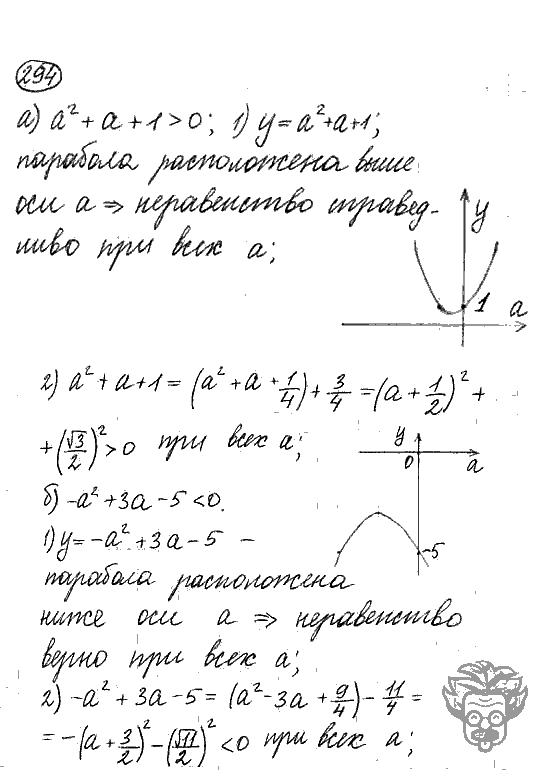 294
а) a² + a + 1 > 0; 1) y = a² + a + 1;
парабола расположена выше
оси a ⇒ неравенство справед-
ливо при всех a;
y
1
a
2) a² + a + 1 = (a² + a + 1/4) + 3/4 = (a + 1/2)² +
+ (√3/2)² > 0 при всех a;
y
0
a
-5
б) -a² + 3a - 5 < 0.
1) y = -a² + 3a - 5 -
парабола расположена
ниже оси a ⇒ неравенство
верно при всех a;
2) -a² + 3a - 5 = (a² - 3a + 9/4) - 11/4 =
= -(a + 3/2)² - (√11/2)² < 0 при всех a;